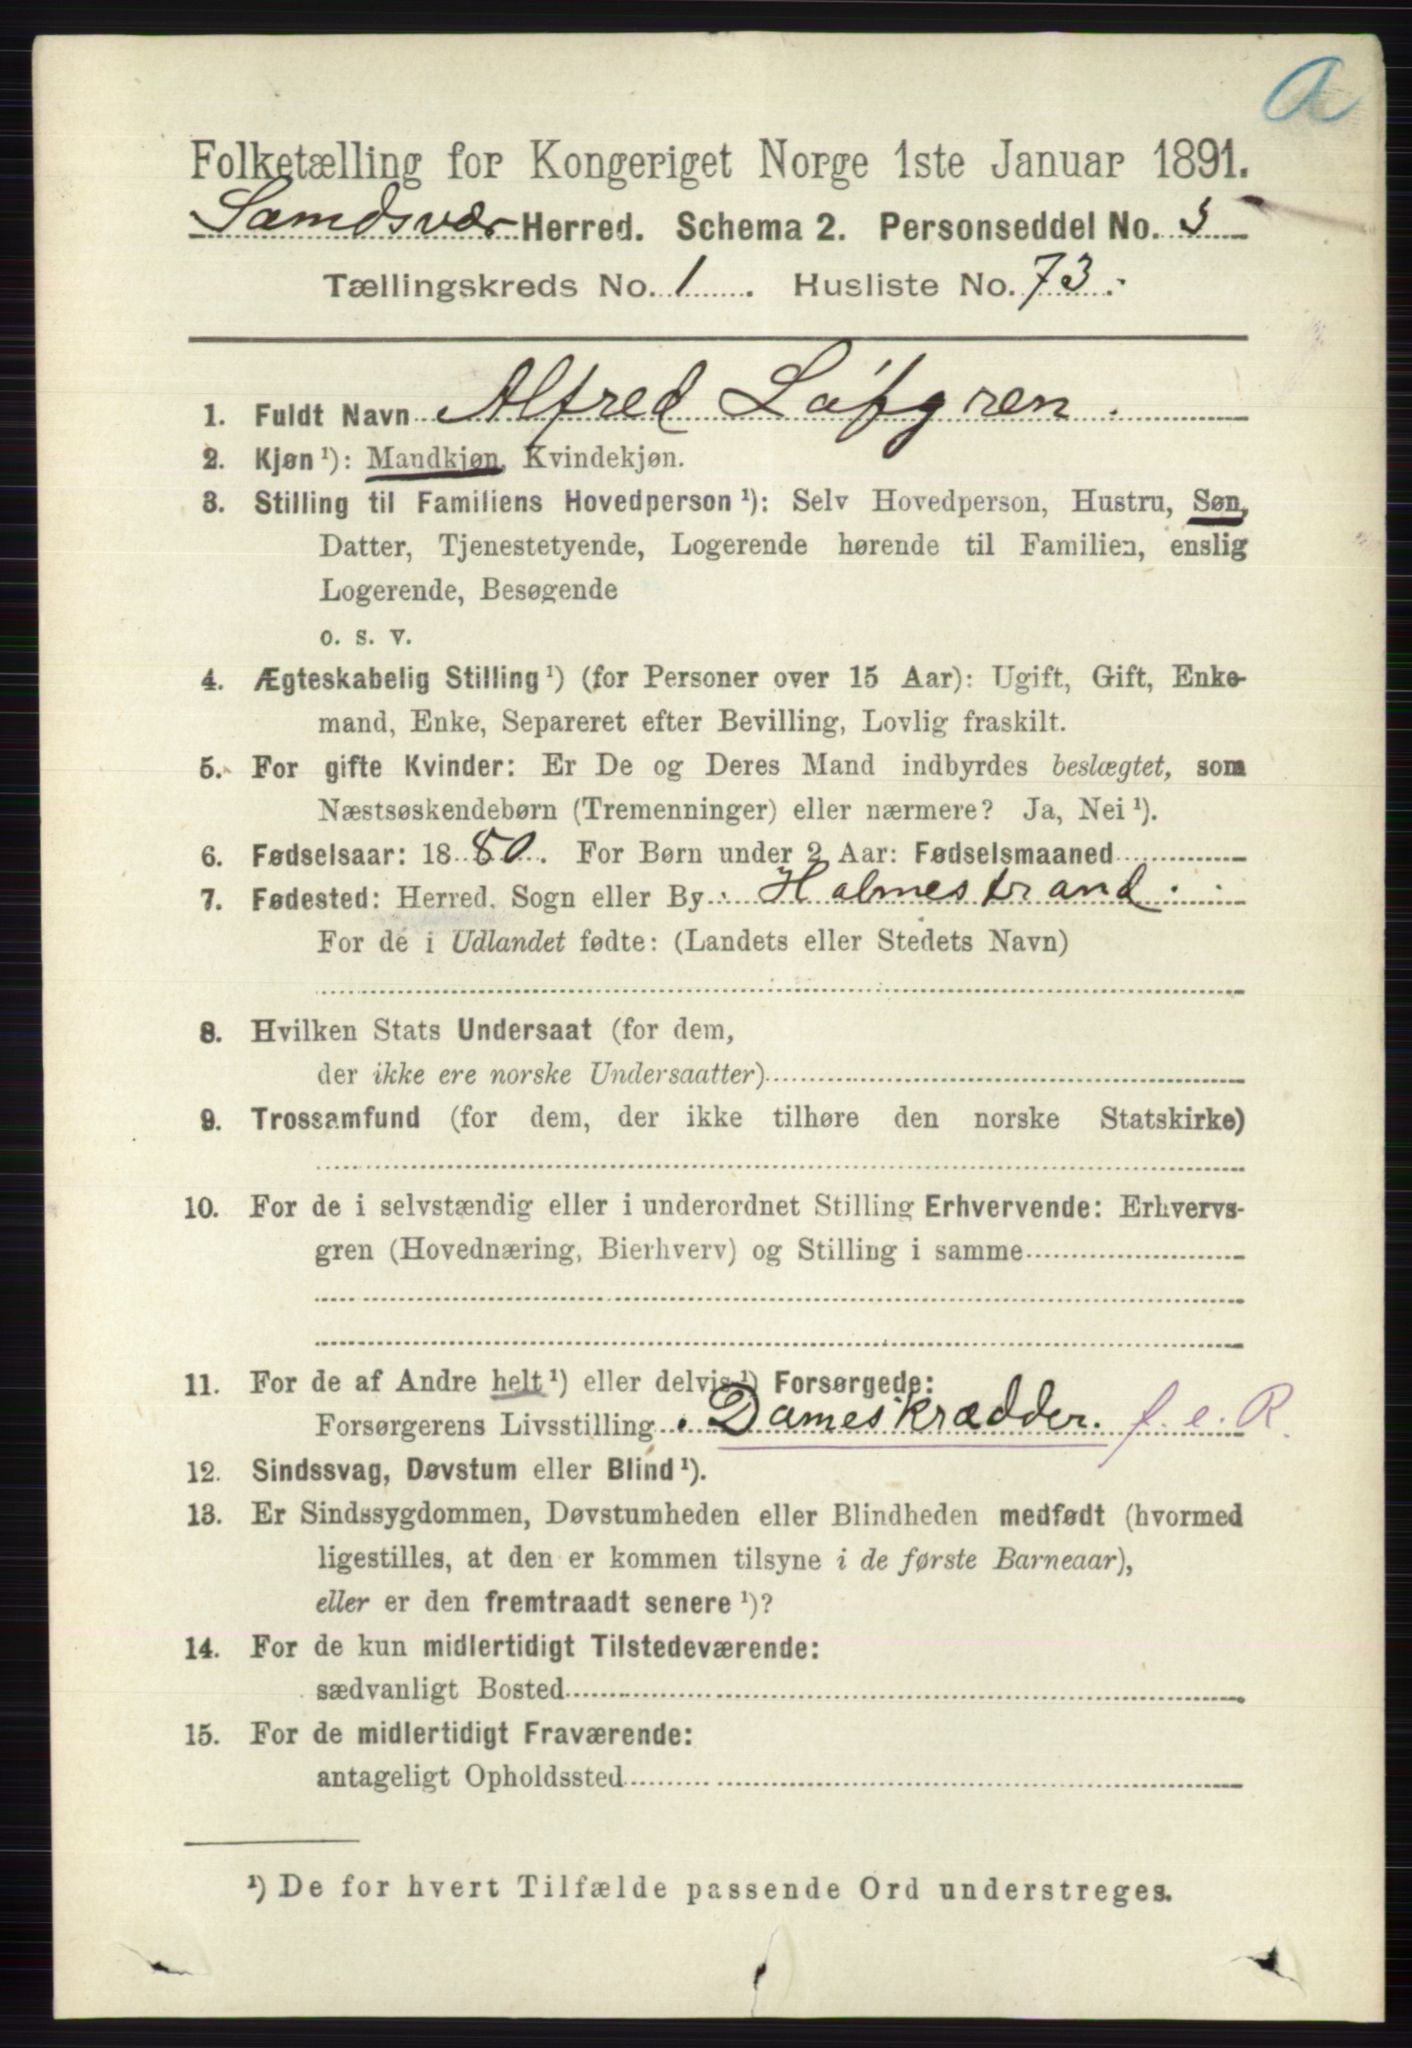 a
Folketælling for Kongeriget Norge 1ste Januar 1891.
Sandsvær Herred. Schema 2. Personseddel No. 5
Tællingskreds No. 1. Husliste No. 73.
1. Fuldt Navn Alfred Löfgren.
2. Kjøn ¹): Mandkjøn, Kvindekjøn.
3. Stilling til Familiens Hovedperson ¹): Selv Hovedperson, Hustru, Søn,
Datter, Tjenestetyende, Logerende hørende til Familien, enslig
Logerende, Besøgende
o. s. v.
4. Ægteskabelig Stilling ¹) (for Personer over 15 Aar): Ugift, Gift, Enke-
mand, Enke, Separeret efter Bevilling, Lovlig fraskilt.
5. For gifte Kvinder: Er De og Deres Mand indbyrdes beslægtet, som
Næstsøskendebørn (Tremenninger) eller nærmere? Ja, Nei ¹).
6. Fødselsaar: 1880. For Børn under 2 Aar: Fødselsmaaned
7. Fødested: Herred, Sogn eller By Holmestrand
For de i Udlandet fødte: (Landets eller Stedets Navn)
8. Hvilken Stats Undersaat (for dem,
der ikke ere norske Undersaatter)
9. Trossamfund (for dem, der ikke tilhøre den norske Statskirke)
10. For de i selvstændig eller i underordnet Stilling Erhvervende: Erhvervs-
gren (Hovednæring, Bierhverv) og Stilling i samme
11. For de af Andre helt ¹) eller delvis ¹) Forsørgede:
Forsørgerens Livsstilling Dameskrædder. f. e. R.
12. Sindssvag, Døvstum eller Blind ¹).
13. Er Sindssygdommen, Døvstumheden eller Blindheden medfødt (hvormed
ligestilles, at den er kommen tilsyne i de første Barneaar),
eller er den fremtraadt senere ¹)?
14. For de kun midlertidigt Tilstedeværende:
sædvanligt Bosted
15. For de midlertidigt Fraværende:
antageligt Opholdssted
¹) De for hvert Tilfælde passende Ord understreges.